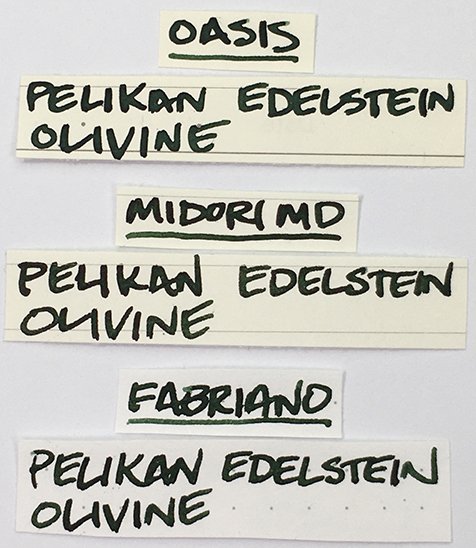 OASIS
PELIKAN EDELSTEIN
OLIVINE
MIDORI MD
PELIKAN EDELSTEIN
OLIVINE
FABRIANO
PELIKAN EDELSTEIN
OLIVINE